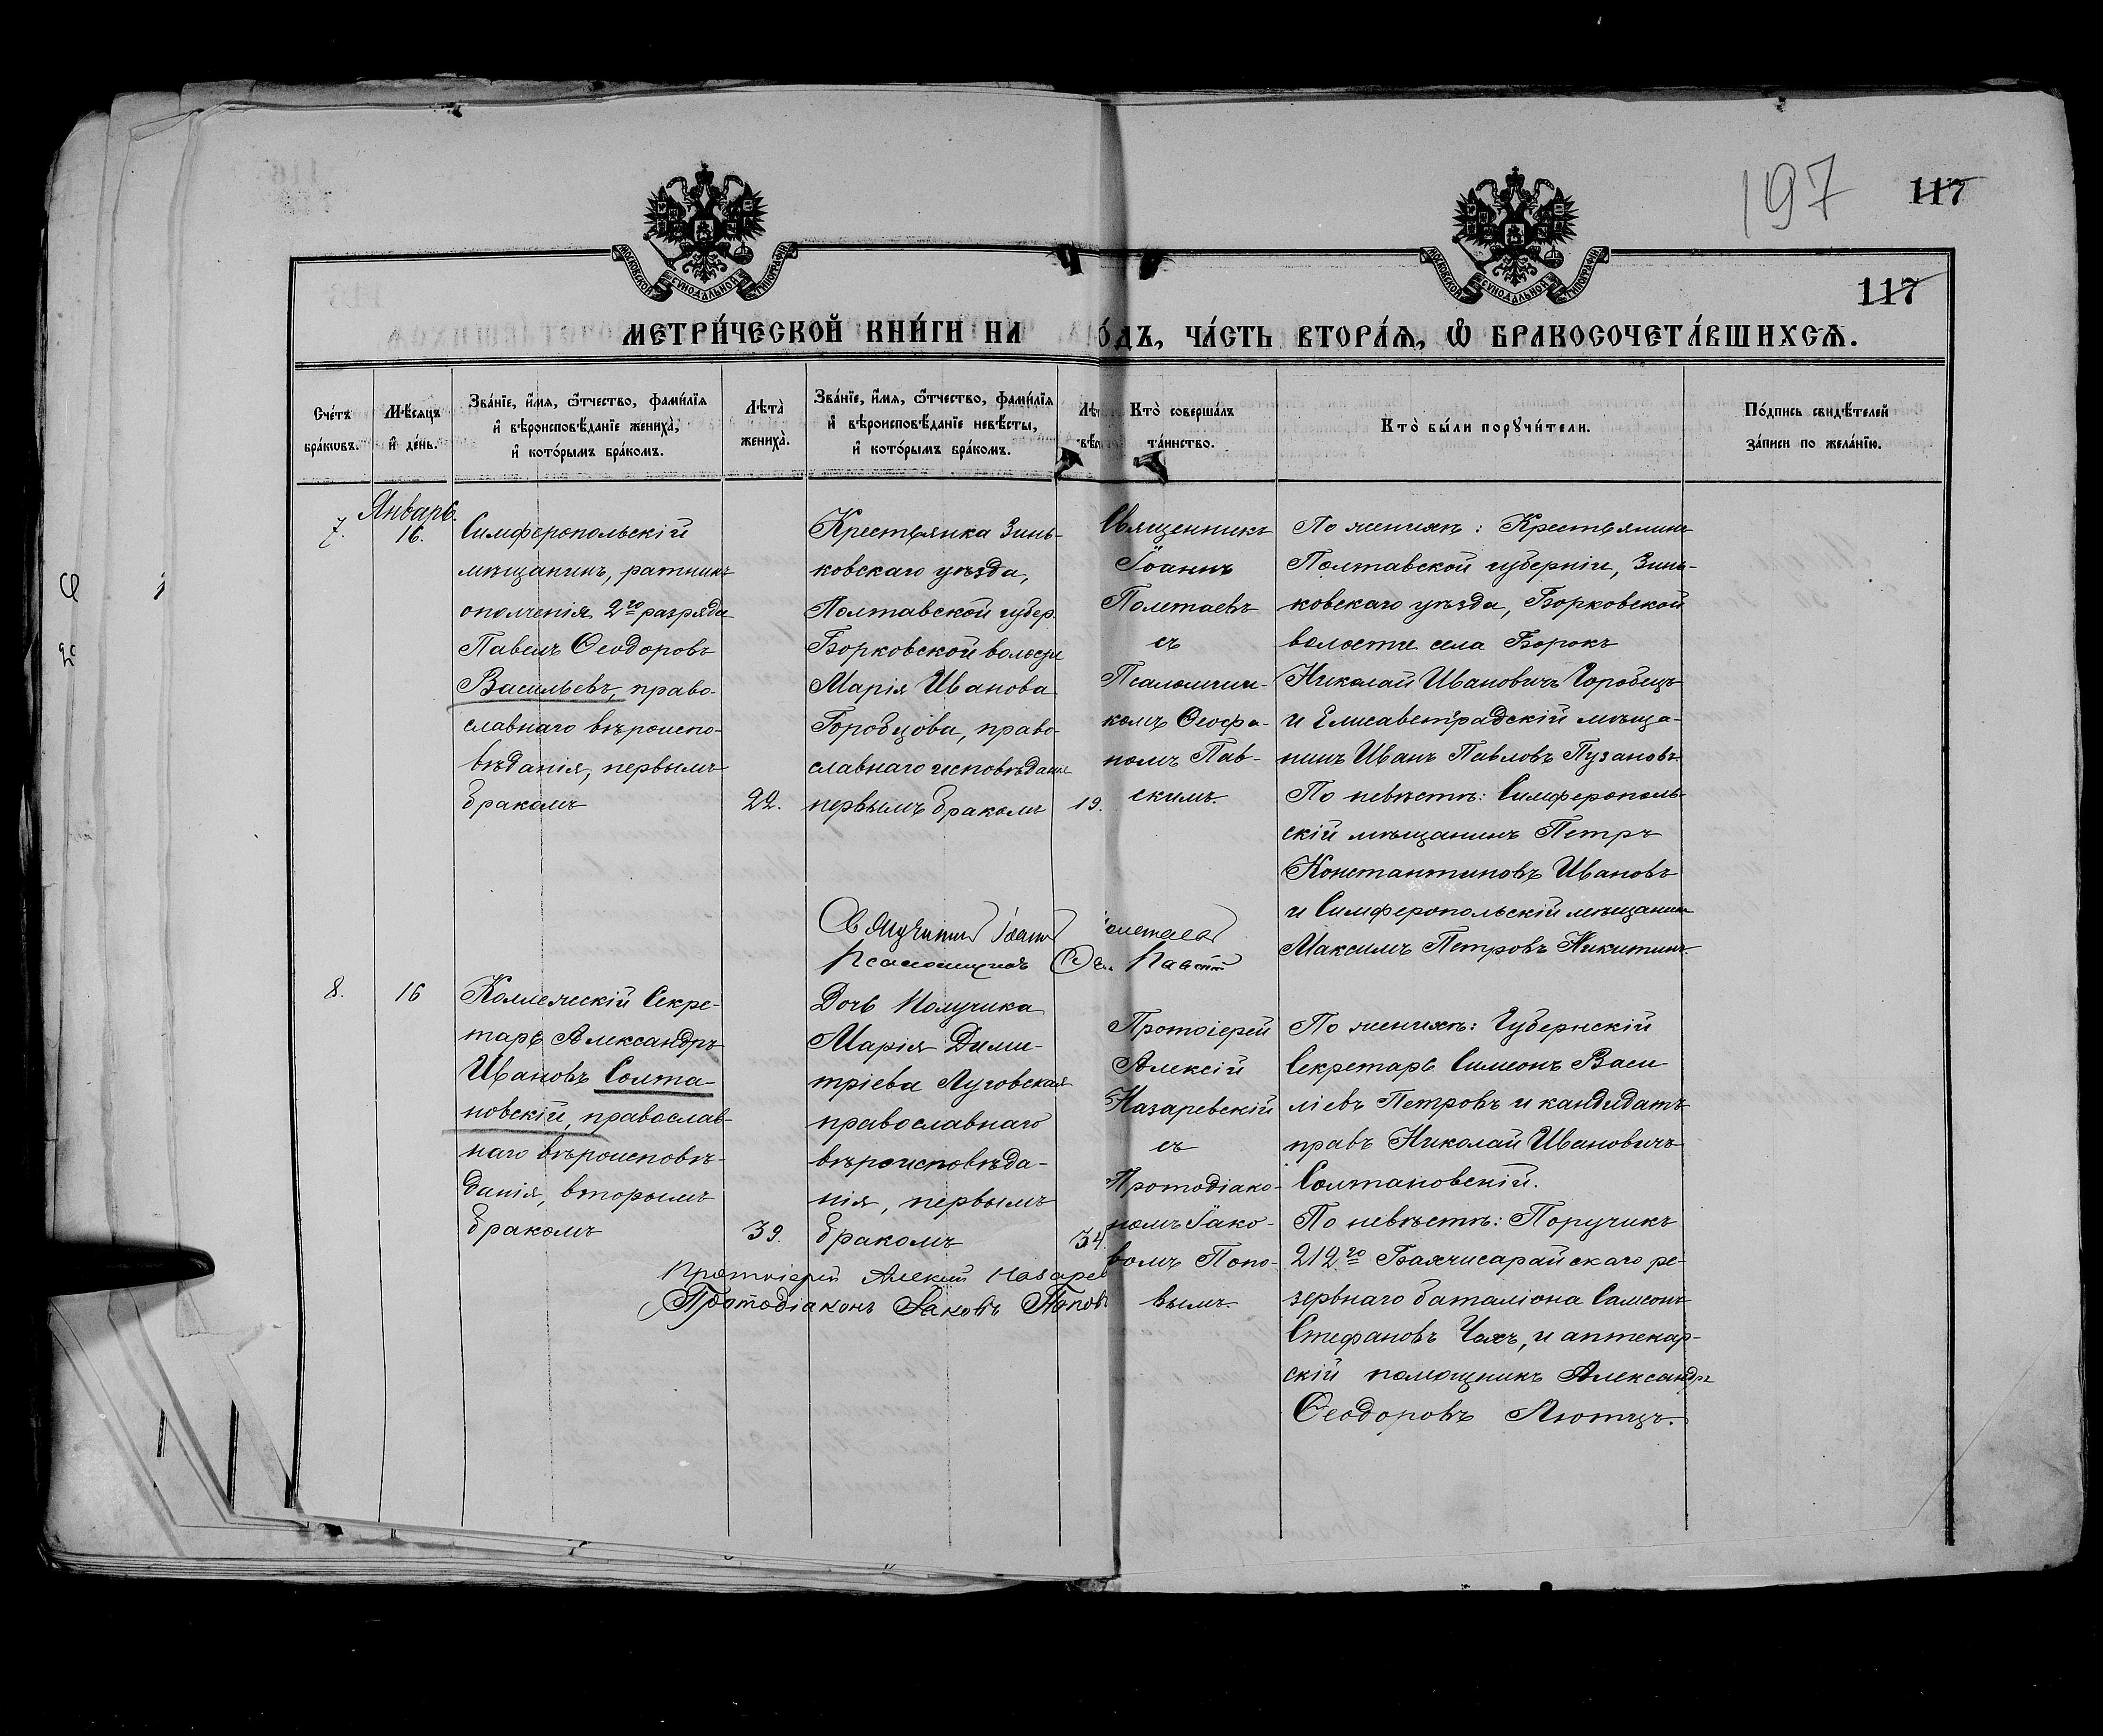 197
117
117
МОСКОВСКОЙ СУНОДАЛЬНОЙ ТИПОГРАФІИ
МОСКОВСКОЙ СУНОДАЛЬНОЙ ТИПОГРАФІИ
МЕТРИ́ЧЕСКОЙ КНИ́ГИ НА
О́ДЪ, ЧА́СТЬ ВТОРА́Я, Ѡ҆ БРАКОСОЧЕТА́ВШИХСЯ.
Сче́тъ
бра́кѡвъ.
Мѣ́сяцъ
и҆ де́нь.
Зва́нїе, и҆́мя, ѻ҆́тчество, фами́лїя
и҆ вѣроисповѣ́данїе жениха̀,
и҆ кото́рымъ бра́комъ.
Лѣта̀
жениха̀.
Зва́нїе, и҆́мя, ѻ҆́тчество, фами́лїя
и҆ вѣроисповѣ́данїе невѣ́сты,
и҆ кото́рымъ бра́комъ.
Кто̀ соверша́лъ
та́инство.
Кто̀ бы́ли порꙋчи́тели.
По́дпись свидѣ́телей
за́писи по жела́нїю.
7.
Январь.
16.
Симферопольскій
мѣщанинъ, ратникъ
ополченія 2го разряда
Павелъ Ѳеодоровъ
Васильевъ, право-
славнаго вѣроиспо-
вѣданія, первымъ
бракомъ
22.
Крестьянка Зинь-
ковскаго уѣзда,
Полтавской губер.
Борковской волости
Марія Иванова
Горобцова, право-
славнаго исповѣданія
первымъ бракомъ
19.
Священникъ
Іоаннъ
Полетаевъ
съ
Псаломщи-
комъ Ѳеофа-
номъ Пав-
скимъ.
По женихѣ: Крестьянинъ
Полтавской губерніи, Зинь-
ковскаго уѣзда, Борковской
волости села Борокъ
Николай Ивановичъ Горобецъ
и Елисаветградскій мѣща-
нинъ Иванъ Павловъ Пузановъ
По невѣстѣ: Симферополь-
скій мѣщанинъ Петръ
Константиновъ Ивановъ
и Симферопольскій мѣщанинъ
Максимъ Петровъ Никитинъ.
Священникъ Іоаннъ Полетаевъ
Псаломщикъ
8.
16
Коллежскій Секре-
тарь Александръ
Ивановъ Солта-
новскій, православ-
наго вѣроисповѣ-
данія, вторымъ
бракомъ
39.
Дочь Получика
Марія Дими-
тріева Луговская
православнаго
вѣроисповѣда-
нія, первымъ
бракомъ
34.
Протоіерей
Алексій
Назаревскій
съ
Протодіако-
номъ Іако-
вомъ Попо-
вымъ.
По женихѣ: Губернскій
Секретарь Симеонъ Васи-
ліевъ Петровъ и кандидатъ
правъ Николай Ивановичъ
Солтановскій.
По невѣстѣ: Поручикъ
212го Бахчисарайскаго ре-
зервнаго баталіона Самсонъ
Стефановъ Чахъ, и аптекар-
скій помощникъ Александръ
Ѳеодоровъ Лютцъ.
Протоіерей Алексій Назарев
Протодіаконъ Іаковъ Поповъ